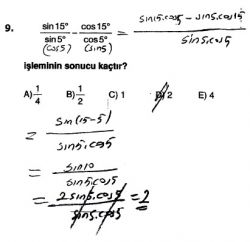 9. sin 15° / sin 5° - cos 15° / cos 5° = sin15.cos5 - sin5.cos15 / sin5.cos5
(cos5) (sin5)
işleminin sonucu kaçtır?
A) 1/4 B) 1/2 C) 1 D) 2 E) 4
= sin(15-5) / sin5.cos5
= sin10 / sin5.cos5
= 2sin5.cos5 / sin5.cos5 = 2